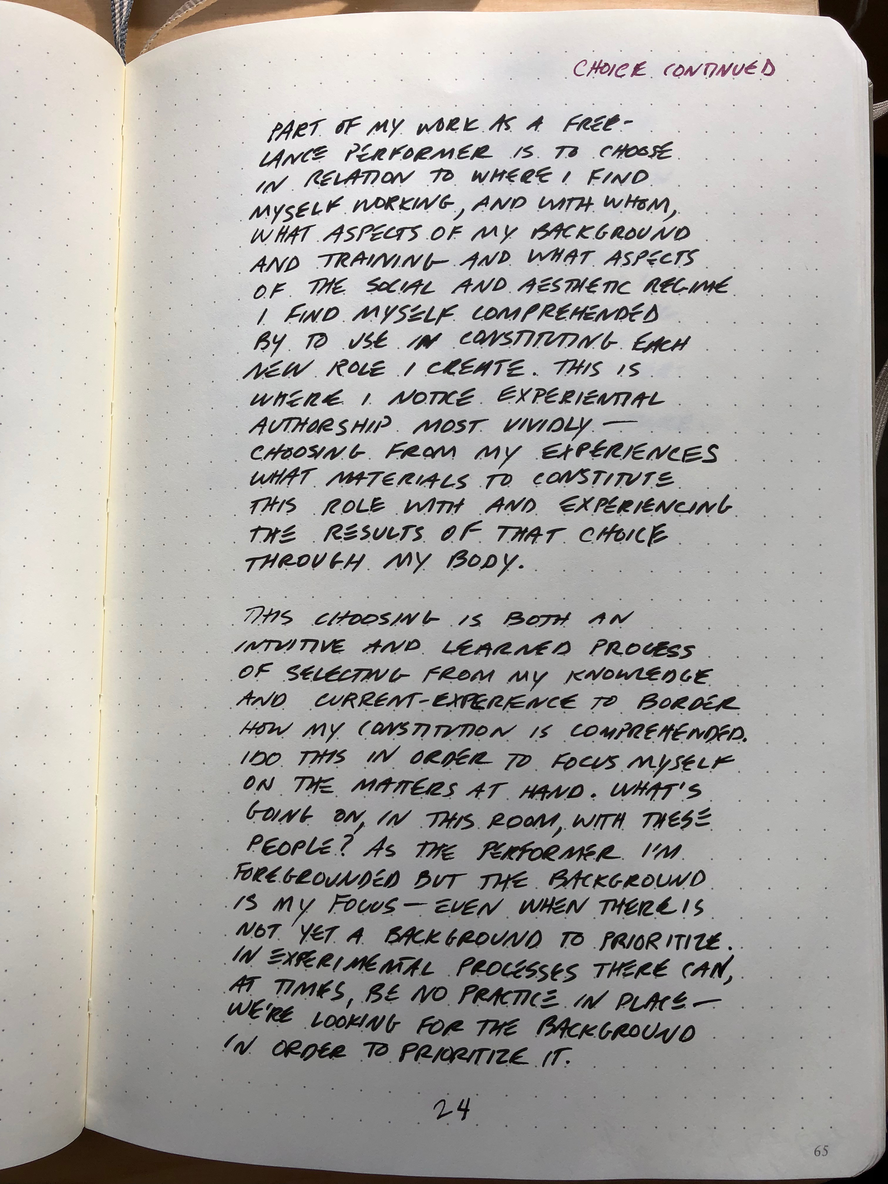 CHOICE CONTINUED
PART OF MY WORK AS A FREE-
LANCE PERFORMER IS TO CHOOSE
IN RELATION TO WHERE I FIND
MYSELF WORKING, AND WITH WHOM,
WHAT ASPECTS OF MY BACKGROUND
AND TRAINING AND WHAT ASPECTS
OF THE SOCIAL AND AESTHETIC REGIME
I FIND MYSELF COMPREHENDED
BY TO USE IN CONSTITUTING EACH
NEW ROLE I CREATE. THIS IS
WHERE I NOTICE EXPERIENTIAL
AUTHORSHIP MOST VIVIDLY —
CHOOSING FROM MY EXPERIENCES
WHAT MATERIALS TO CONSTITUTE
THIS ROLE WITH AND EXPERIENCING
THE RESULTS OF THAT CHOICE
THROUGH MY BODY.
THIS CHOOSING IS BOTH AN
INTUITIVE AND LEARNED PROCESS
OF SELECTING FROM MY KNOWLEDGE
AND CURRENT-EXPERIENCE TO BORDER
HOW MY CONSTITUTION IS COMPREHENDED.
I DO THIS IN ORDER TO FOCUS MYSELF
ON THE MATTERS AT HAND. WHAT'S
GOING ON, IN THIS ROOM, WITH THESE
PEOPLE? AS THE PERFORMER I'M
FOREGROUNDED BUT THE BACKGROUND
IS MY FOCUS — EVEN WHEN THERE IS
NOT YET A BACKGROUND TO PRIORITIZE.
IN EXPERIMENTAL PROCESSES THERE CAN,
AT TIMES, BE NO PRACTICE IN PLACE —
WE'RE LOOKING FOR THE BACKGROUND
IN ORDER TO PRIORITIZE IT.
24
65